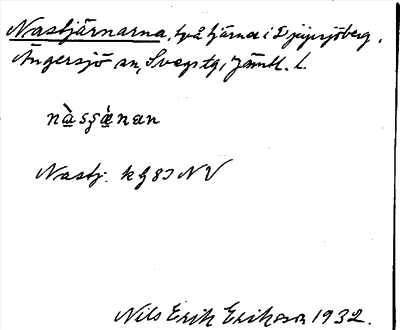 Nastjärnarna, två tjärnar i Djupsjöberg,
Ängersjö sn, Svegs tg, Jämtl. l.
nàsʂæ̀nan
Nastj. k g 83 NV
Nils Erik Erikson 1932.